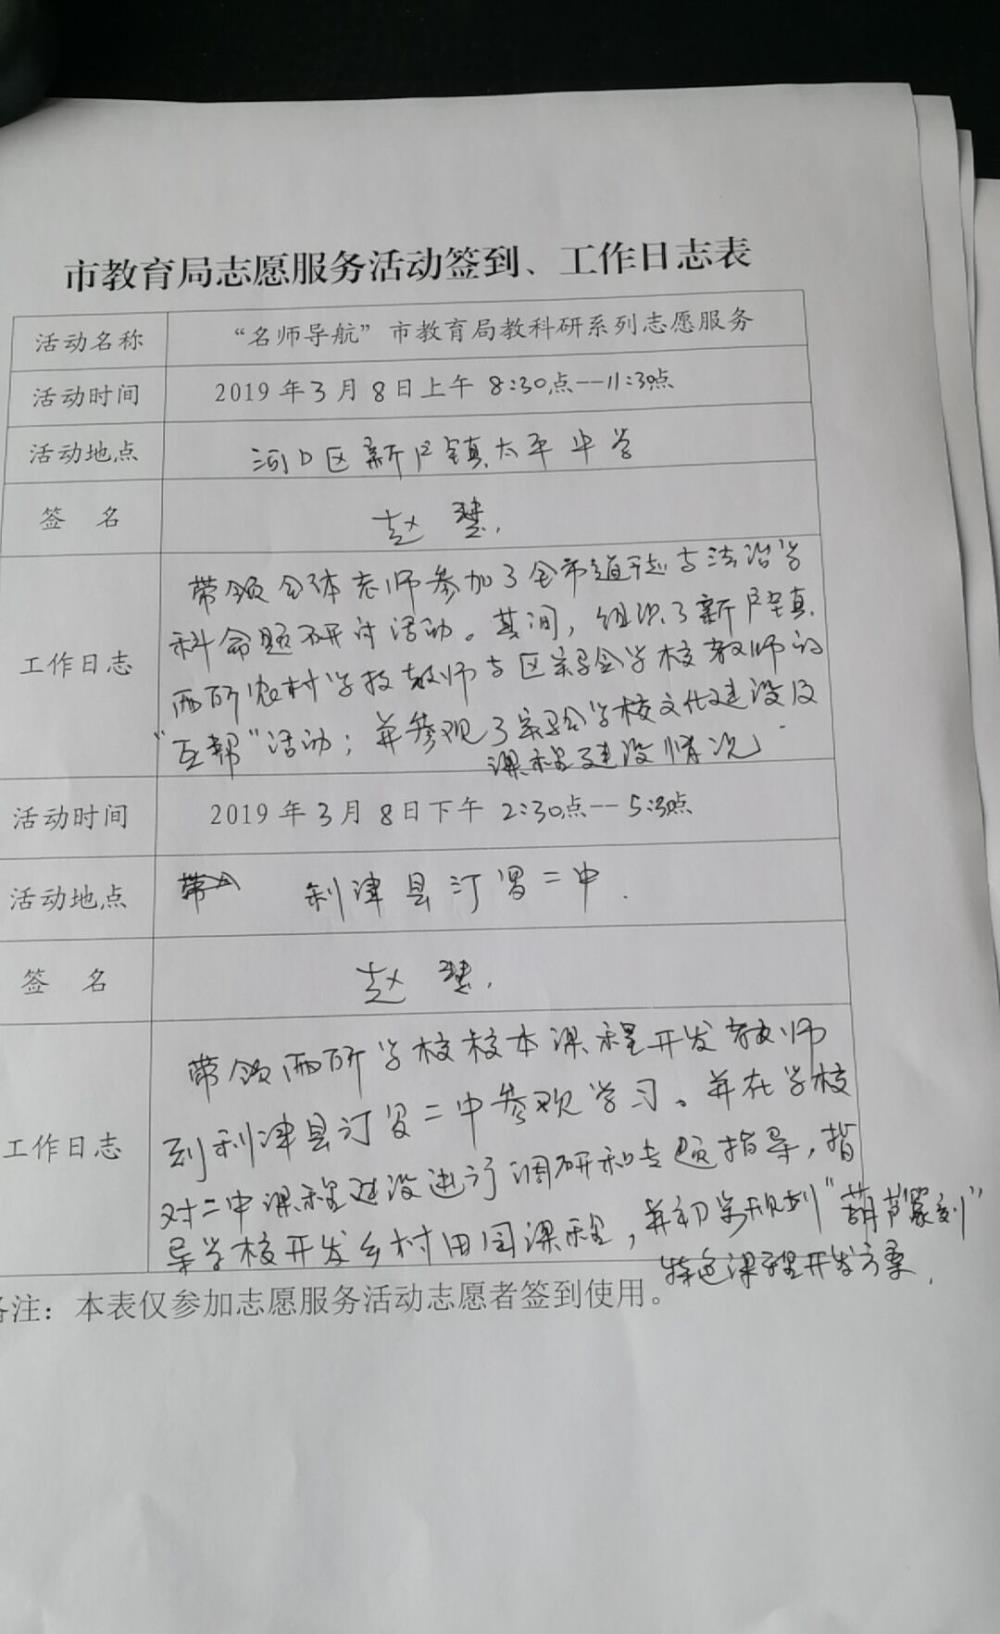 市教育局志愿服务活动签到、工作日志表
活动名称 “名师导航”市教育局教科研系列志愿服务
活动时间 2019年3月8日上午8:30点--11:30点
活动地点 河口区新户镇太平中学
签 名 赵慧
工作日志
带领全体老师参加了全市道德与法治学
科命题研讨活动。其间，组织了新户镇
两所农村学校教师与区实验学校教师的
“互帮”活动；并参观了实验学校文化建设及
课程建设情况
活动时间 2019年3月8日下午2:30点--5:30点
活动地点 利津县汀罗二中.
签 名 赵慧
工作日志
带领两所学校校本课程开发教师
到利津县汀罗二中参观学习。并在学校
对二中课程建设进行调研和专题指导，指
导学校开发乡村田园课程，并初步规划“葫芦篆刻”
特色课程开发方案.
备注：本表仅参加志愿服务活动志愿者签到使用。